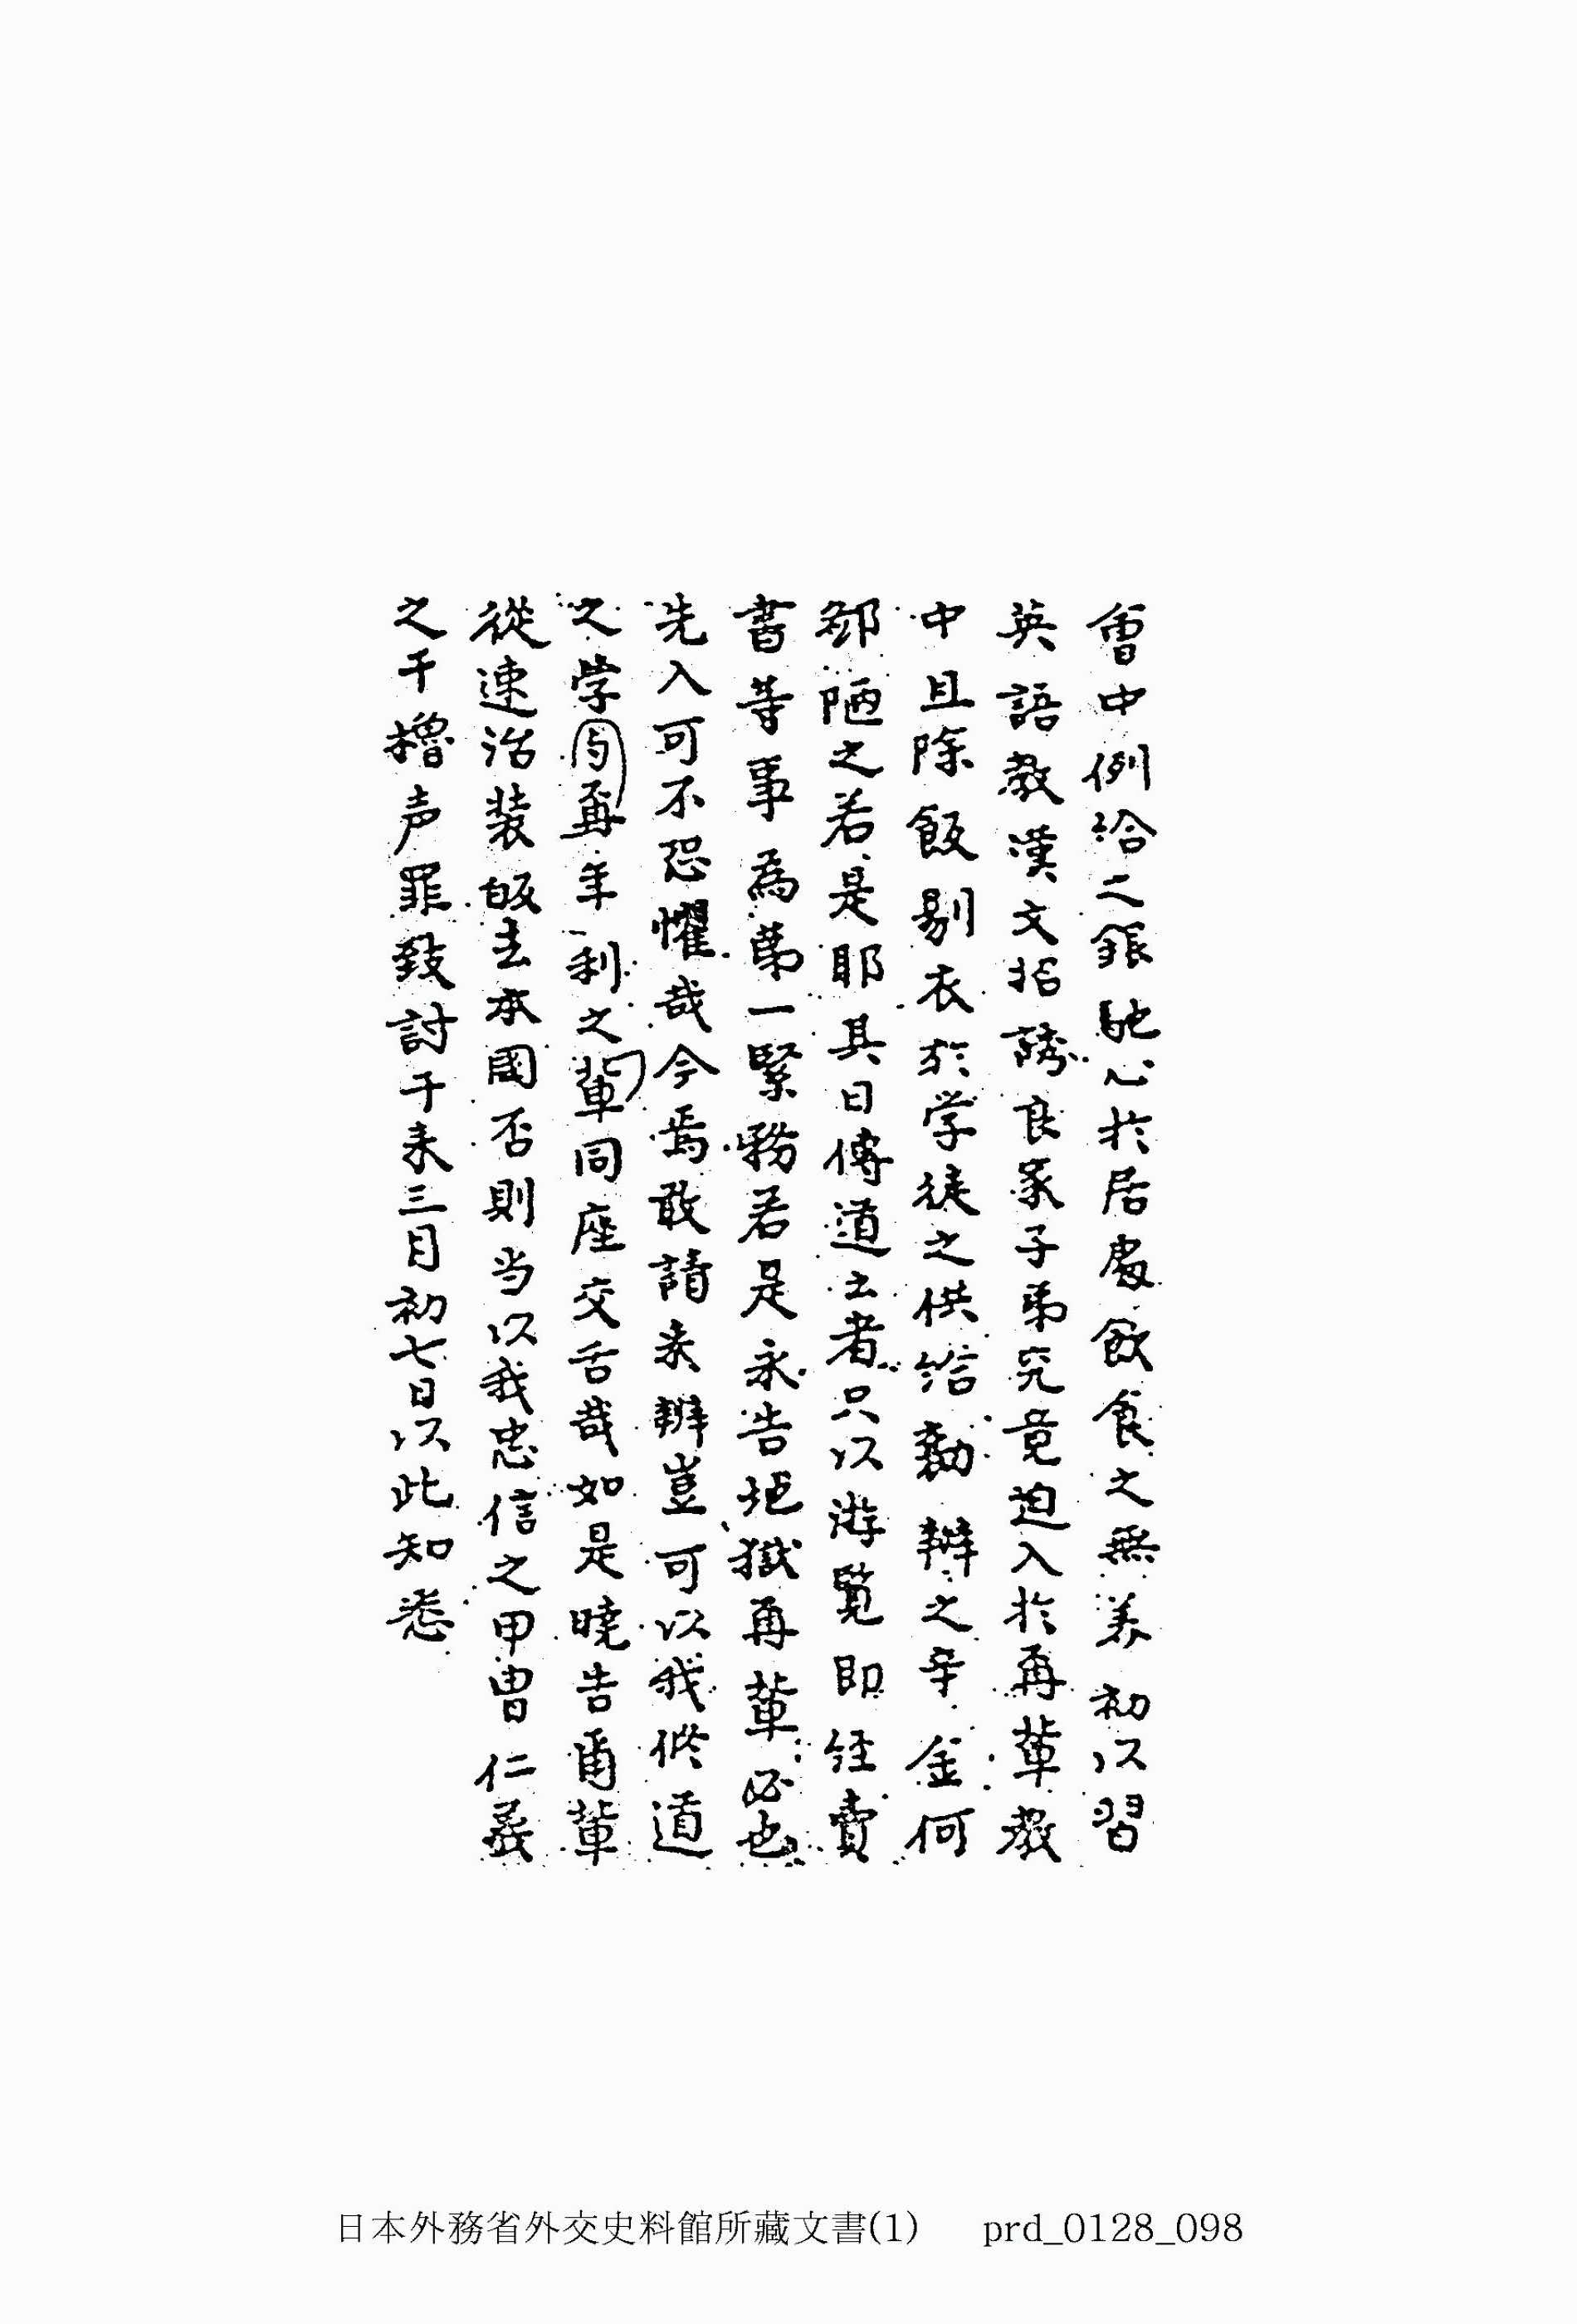 會中例給之銀馳心於居處飲食之無美初以習
英語教漢文招誘良家子弟究竟迫入於再輩教
中且除飯剔衣於学徒之供給勸辨之辛金何
鄙陋之若是耶其曰傳道士者只以遊覽即經賣
書等事為第一緊務若是永告地獄再輩必也
先入可不恐懼哉今焉敢請来辨豈可以我修道
之学与再年利之輩同座交舌哉如是曉告爾輩
從速治装皈去本國否則当以我忠信之甲冑仁義
之干櫓声罪致討于来三月初七日以此知悉
日本外務省外交史料館所藏文書(1) prd_0128_098